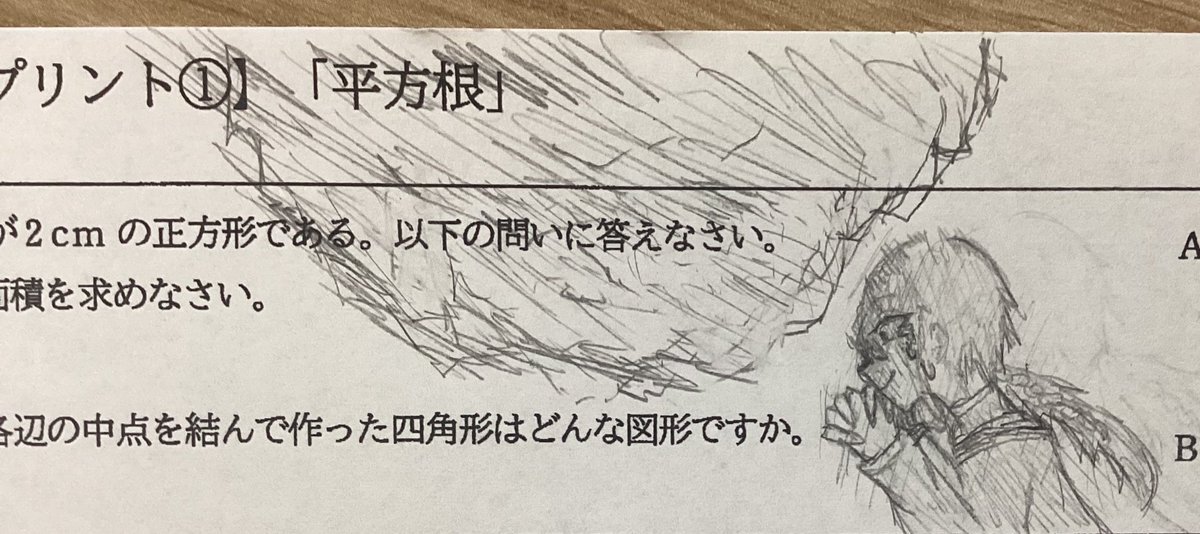 プリント①】「平方根」
が2cmの正方形である。以下の問いに答えなさい。
面積を求めなさい。
A
各辺の中点を結んで作った四角形はどんな図形ですか。
B